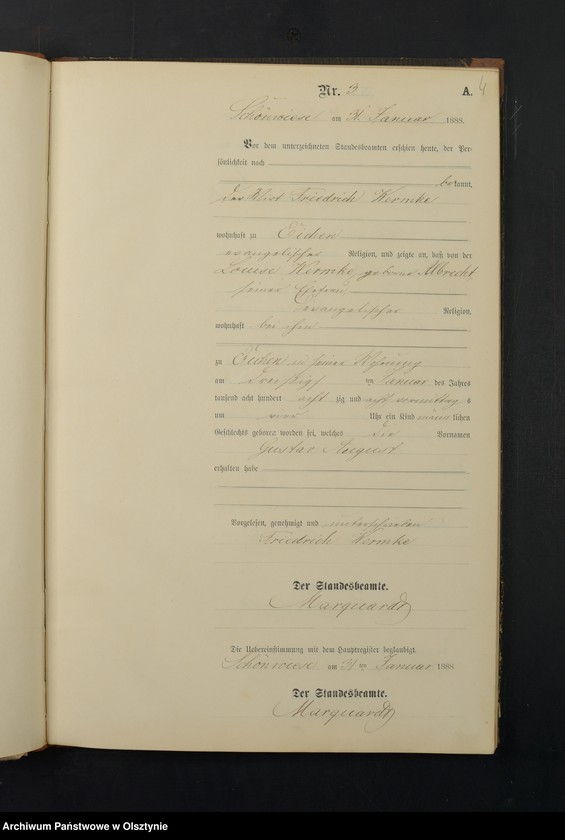 4
Nr. 3 A.
Schönwiese am 31. Januar 1888.
Vor dem unterzeichneten Standesbeamten erschien heute, der Per-
sönlichkeit nach
be kannt,
der Friedrich Kermke
wohnhaft zu Eichen
evangelischer Religion, und zeigte an, daß von der
Louise Kermke, geborene Albrecht,
seiner Ehefrau,
evangelischer Religion,
wohnhaft bei ihm
zu Eichen in seiner Wohnung
am dreißigsten Januar des Jahres
tausend acht hundert acht zig und acht vormittags
um Uhr ein Kind männ lichen
Geschlechts geboren worden sei, welches die Vornamen
Gustav August
erhalten habe
Vorgelesen, genehmigt und unterschrieben
Friedrich Kermke
Der Standesbeamte.
Marquardt
Die Uebereinstimmung mit dem Hauptregister beglaubigt.
Schönwiese am 31 ten Januar 1888
Der Standesbeamte.
Marquardt
Archiwum Państwowe w Olsztynie